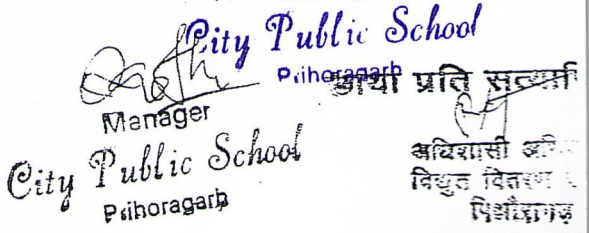 City Public School
Prihoragarh
छाया प्रति सत्यापि
Manager
City Public School
Prihoragarh
अधिशासी अभि
विद्युत वितरण
पिथौरागढ़